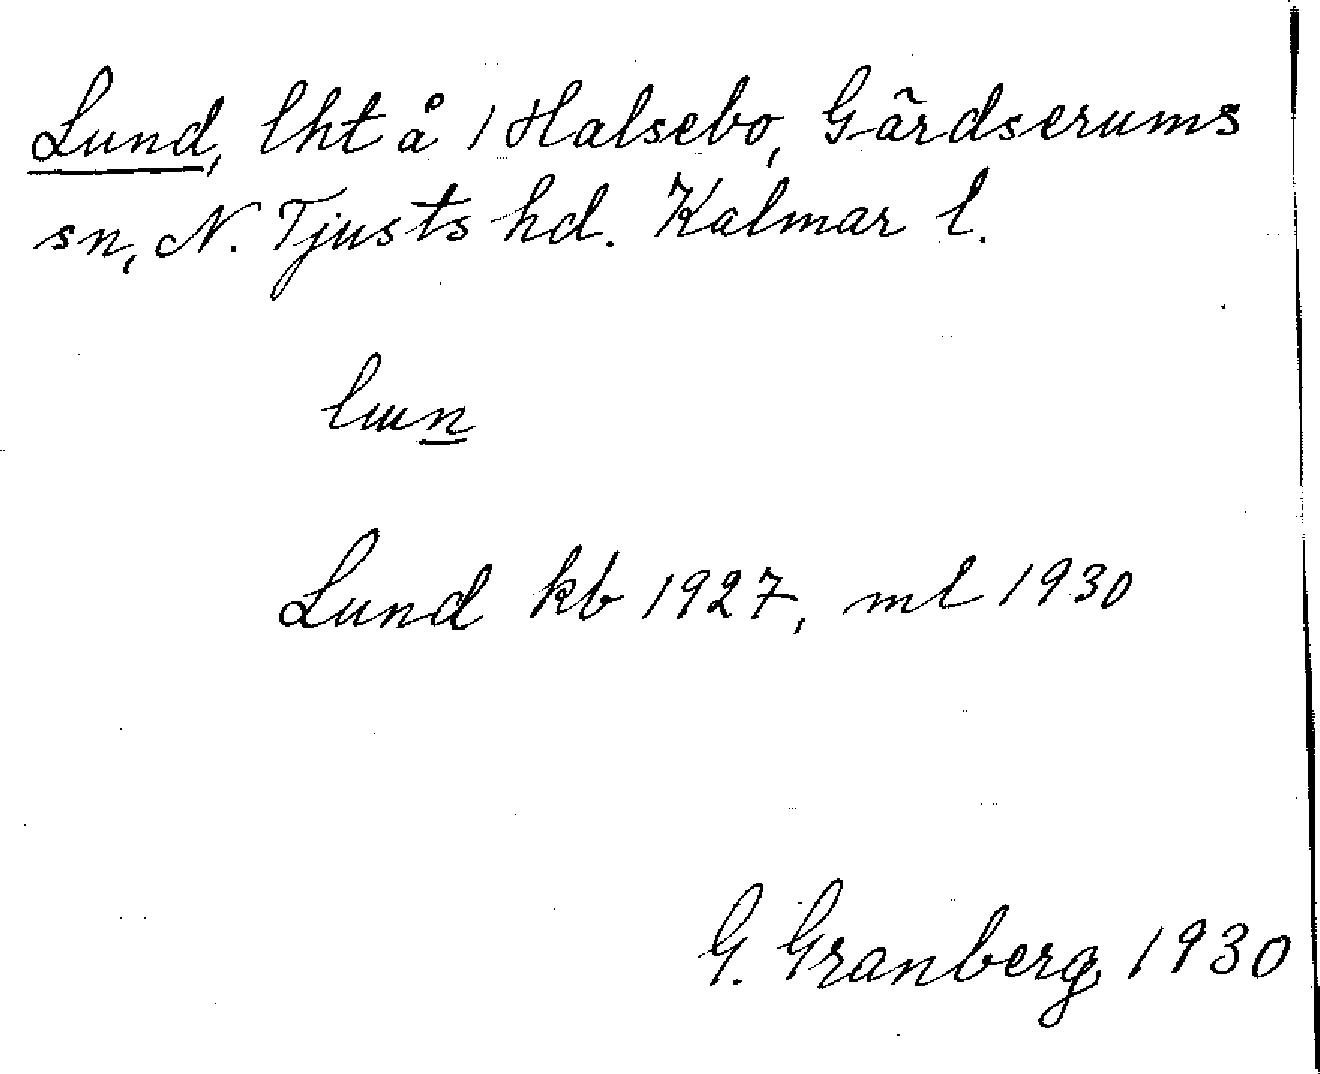 Lund, lht å 1 Halsebo, Gärdserums
sn, N. Tjusts hd. Kalmar l.
lɯn
Lund kb 1927, ml 1930
G. Granberg 1930